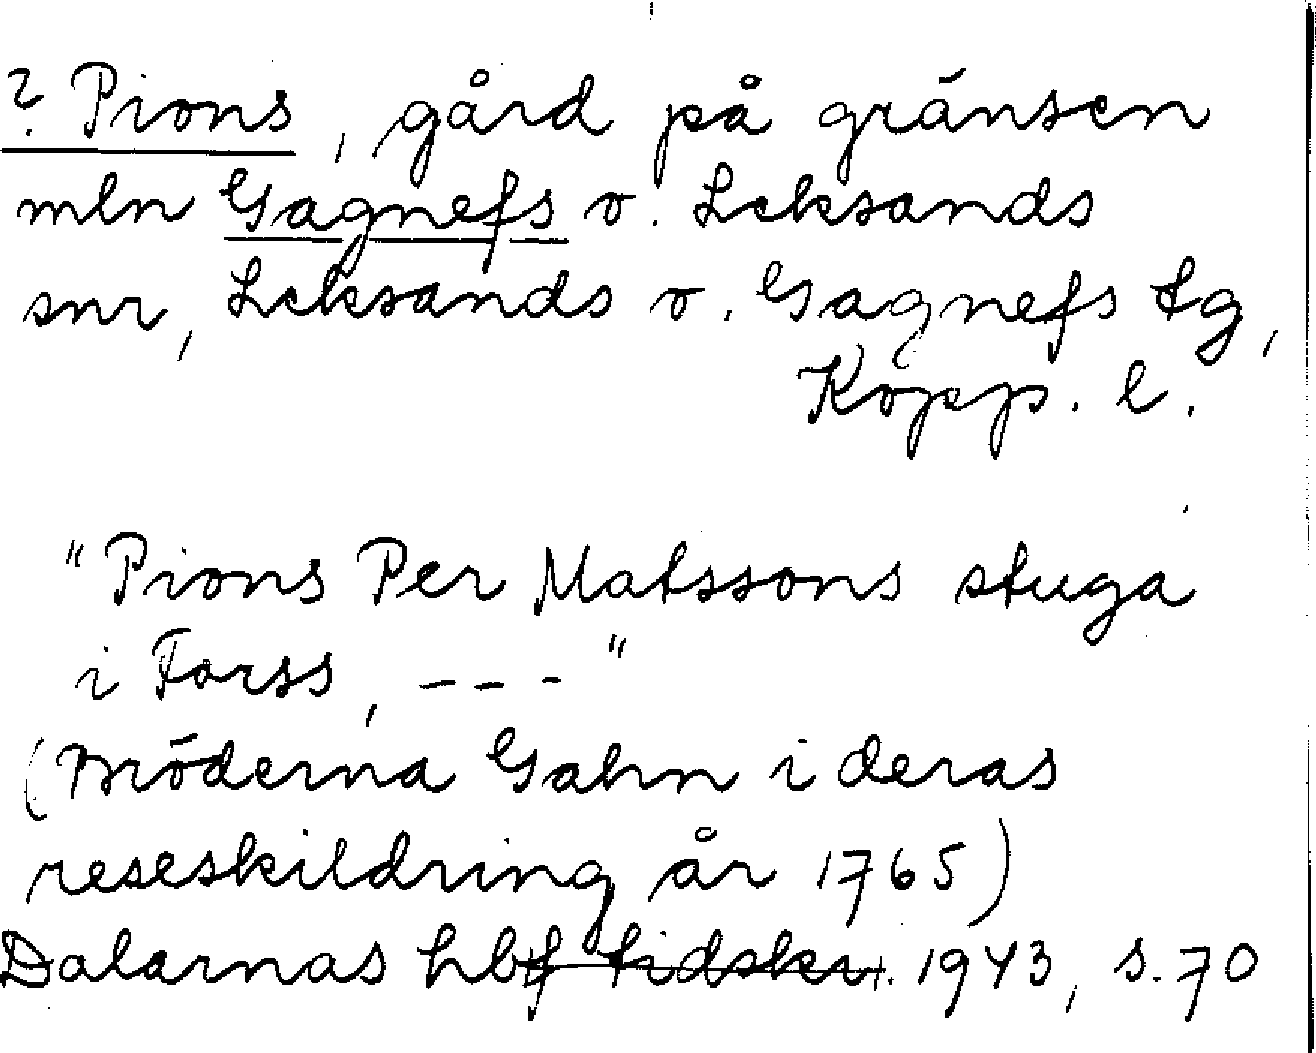 ? Pions, gård på gränsen
mln Gagnefs o. Leksands
snr, Leksands o. Gagnefs tg,
Kopp. l.
"Pions Per Matssons stuga
i Forss, --- "
(Bröderna Gahn i deras
reseskildring år 1765)
Dalarnas hbf tidskr. 1943, s. 70